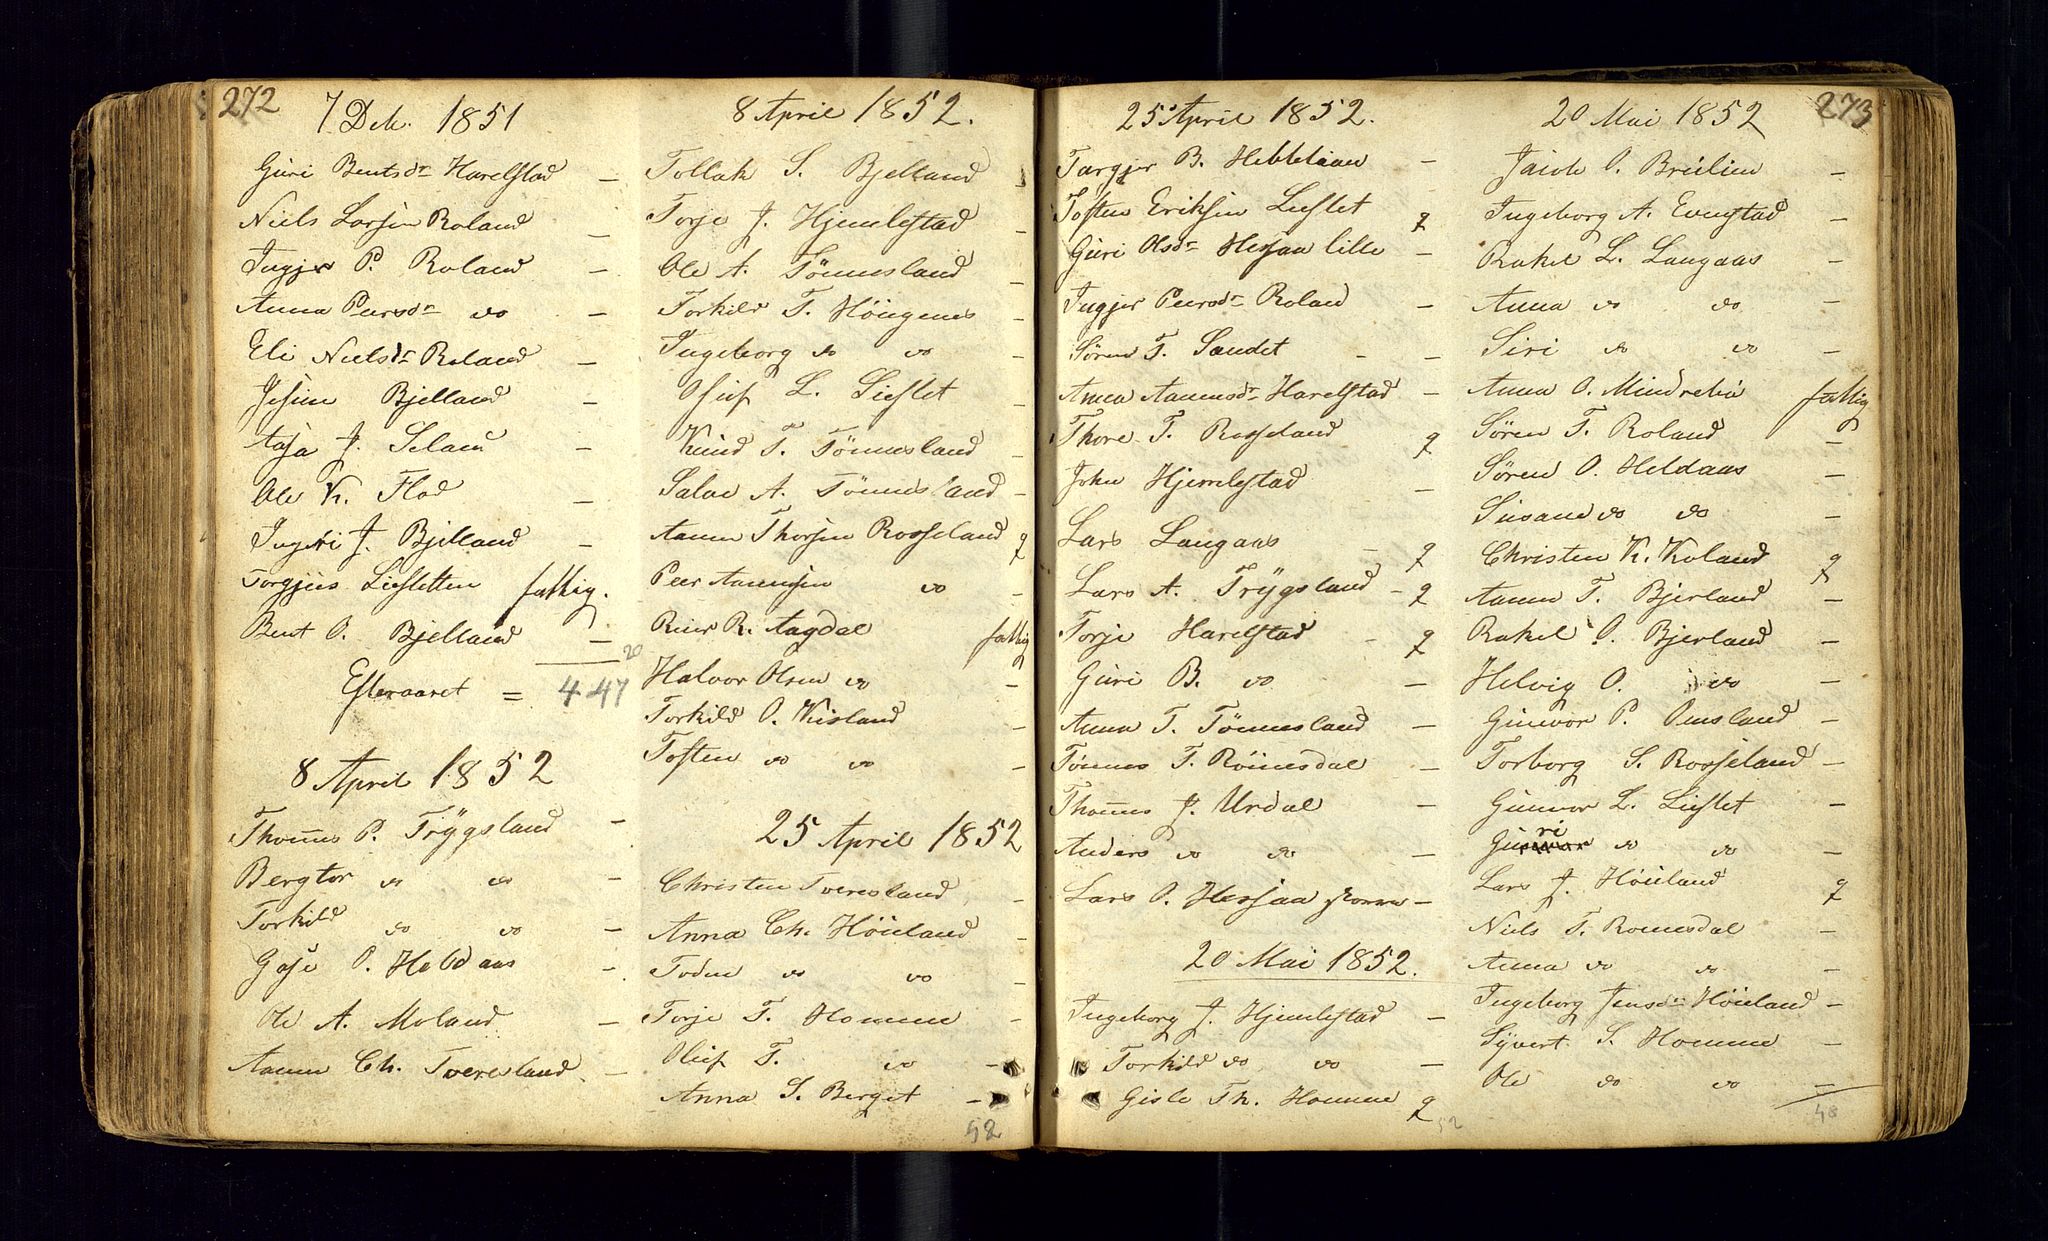 272
7 Dec. 1851
Guri Bentsdr Harelstad –
Niels Larsen Roland –
Ingjer P. Roland –
Anna Peersdr do –
Eli Nielsdr Roland –
Jesine Bjelland –
Aasa J. Seland –
Ole K. Flod –
Ingeri J. Bjelland –
Torgjus Liesletten fattig.
Bent O. Bjelland –
20
Efteraaret = 447
8 April 1852
Thomes P. Trÿgsland –
Bergtor do do –
Torkild do do –
Gose O. Heldaas –
Ole A. Moland –
Aanen Ch. Tveresland –
8 April 1852.
Tollak S. Bjelland
Torje J. Hjemlestad –
Ole A. Tönnesland –
Torkild T. Höugenes –
Ingeborg do do –
Oluf L. Lieslet –
Knud T. Tönnesland –
Salve A. Tönnesland –
Aanen Thorsen Rosseland q
Peer Aanensen do –
Reier R. Aagdal fattig
Halvor Olsen do –
Torkild O. Kisland –
Tosten do do –
25 April 1852
Christen Tveresland –
Anna Ch. Höieland –
Todne do do –
Torje T. Homme –
Oluf T. do –
Anna S. Berget –
52
25 April 1852.
Targjer B. –
Tosten Eriksen Lieslet q
Guri Olsdr Hesjaa lille –
Ingjer Peersdr Roland –
Sören T. Sandet – –
Anna Aanensdr Harelstad –
Thore T. Rosseland q
John Hjemlestad –
Lars Langaas – q
Lars A. Trÿgsland – q
Torje Harelstad – q
Guri B. do –
Anna T. Tönnesland –
Tönnes T. Röinesdal –
Thomes J. Urdal –
Anders do do –
Lars O. Hesjaa –
20 Mai 1852.
Ingeborg J. Hjemlestad –
Torkild do do –
Gisle Th. Homme q
52
20 Mai 1852
273
Jacob O. Breilien –
Ingeborg A. Evenstad –
Rakel L. Langaas –
Anna do do –
Siri do do –
Anna O. Mindrebö fattig
Sören T. Roland –
Sören O. Heldaas –
Susane do do –
Christen K. Roland q
Aanen T. Bjerland –
Rakel O. Bjerland –
Helvig O. do –
Gunvor P. Omsland –
Torborg S. Rosseland –
Gunvor L. Lieslet –
Guri do do –
Lars J. Höieland q
Niels T. Romesdal –
Anna do do –
Ingeborg Jensdr Höieland –
Sÿvert S. Homme –
Ole do do –
48